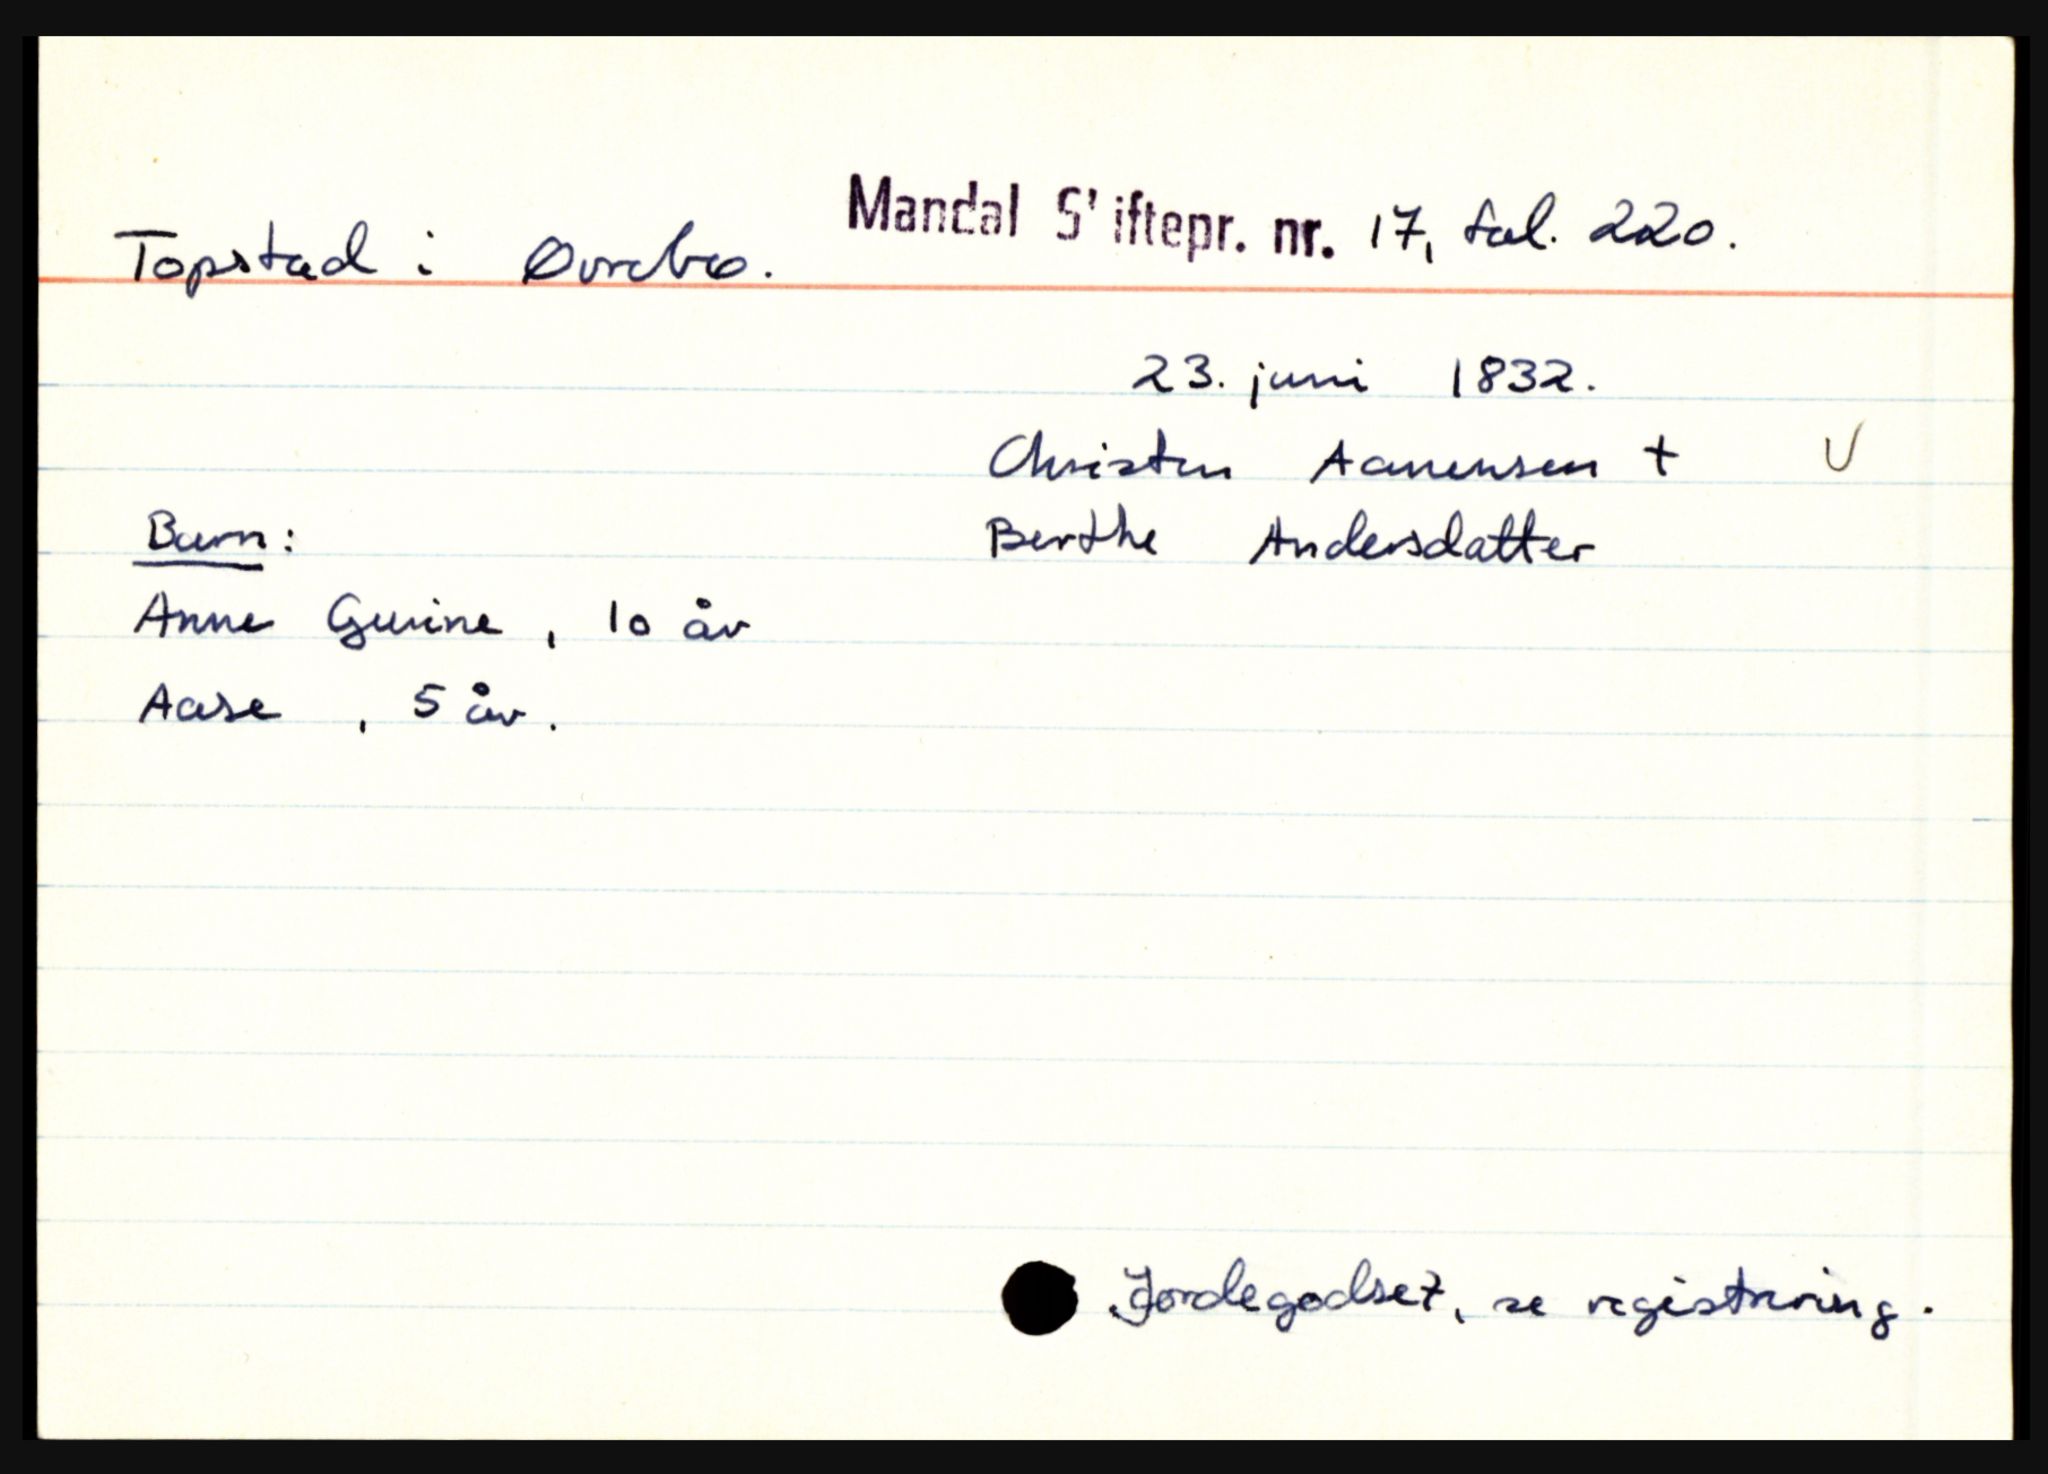 Topstad i Øvrebø. Mandal S'iftepr. nr. 17, fol. 220.
23. juni 1832.
Christen Aanensen + V
Berthe Andersdatter
Barn:
Anne Gurine, 10 år
Aase, 5 år.
Jordegodset, se registrering.